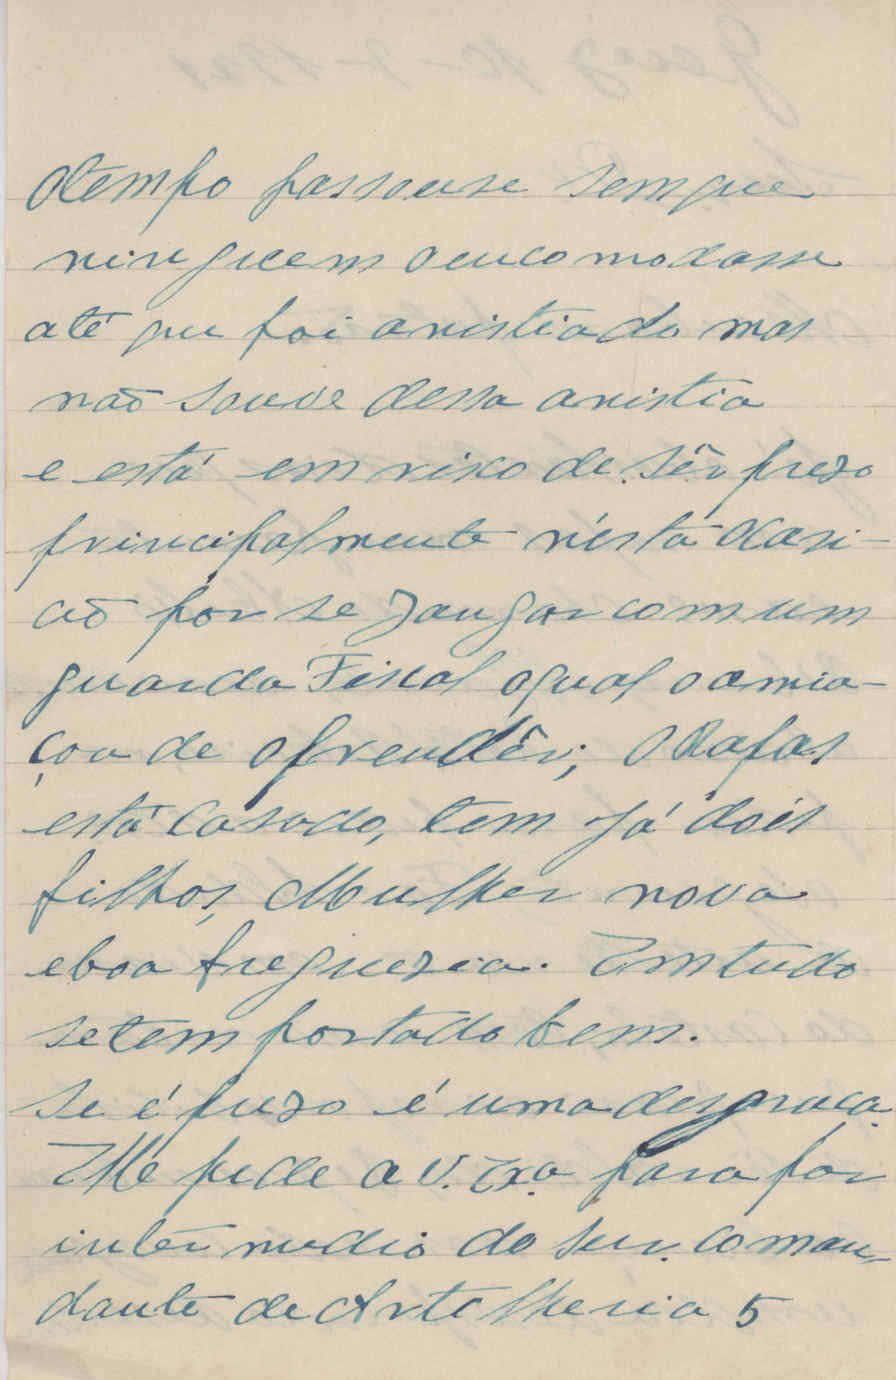 O tempo passouse sem que
ninguem o encomodasse
até que foi anistiado mas
não souve dessa anistia
e está em risco de sêr prezo
principalmente n'ésta ócasi-
ão por se zangar com um
guarda Fiscal o qual o amia-
çou de o prendêr; O Rapas
está casado, tem já dois
filhos, Mulher nova
e boa freguezia. Em tudo
se tem portado bem.
Se é prezo é uma desgraça.
Elle pede a V. Exa para por
intérmedio do Snr. Coman-
dante de Artelheria 5